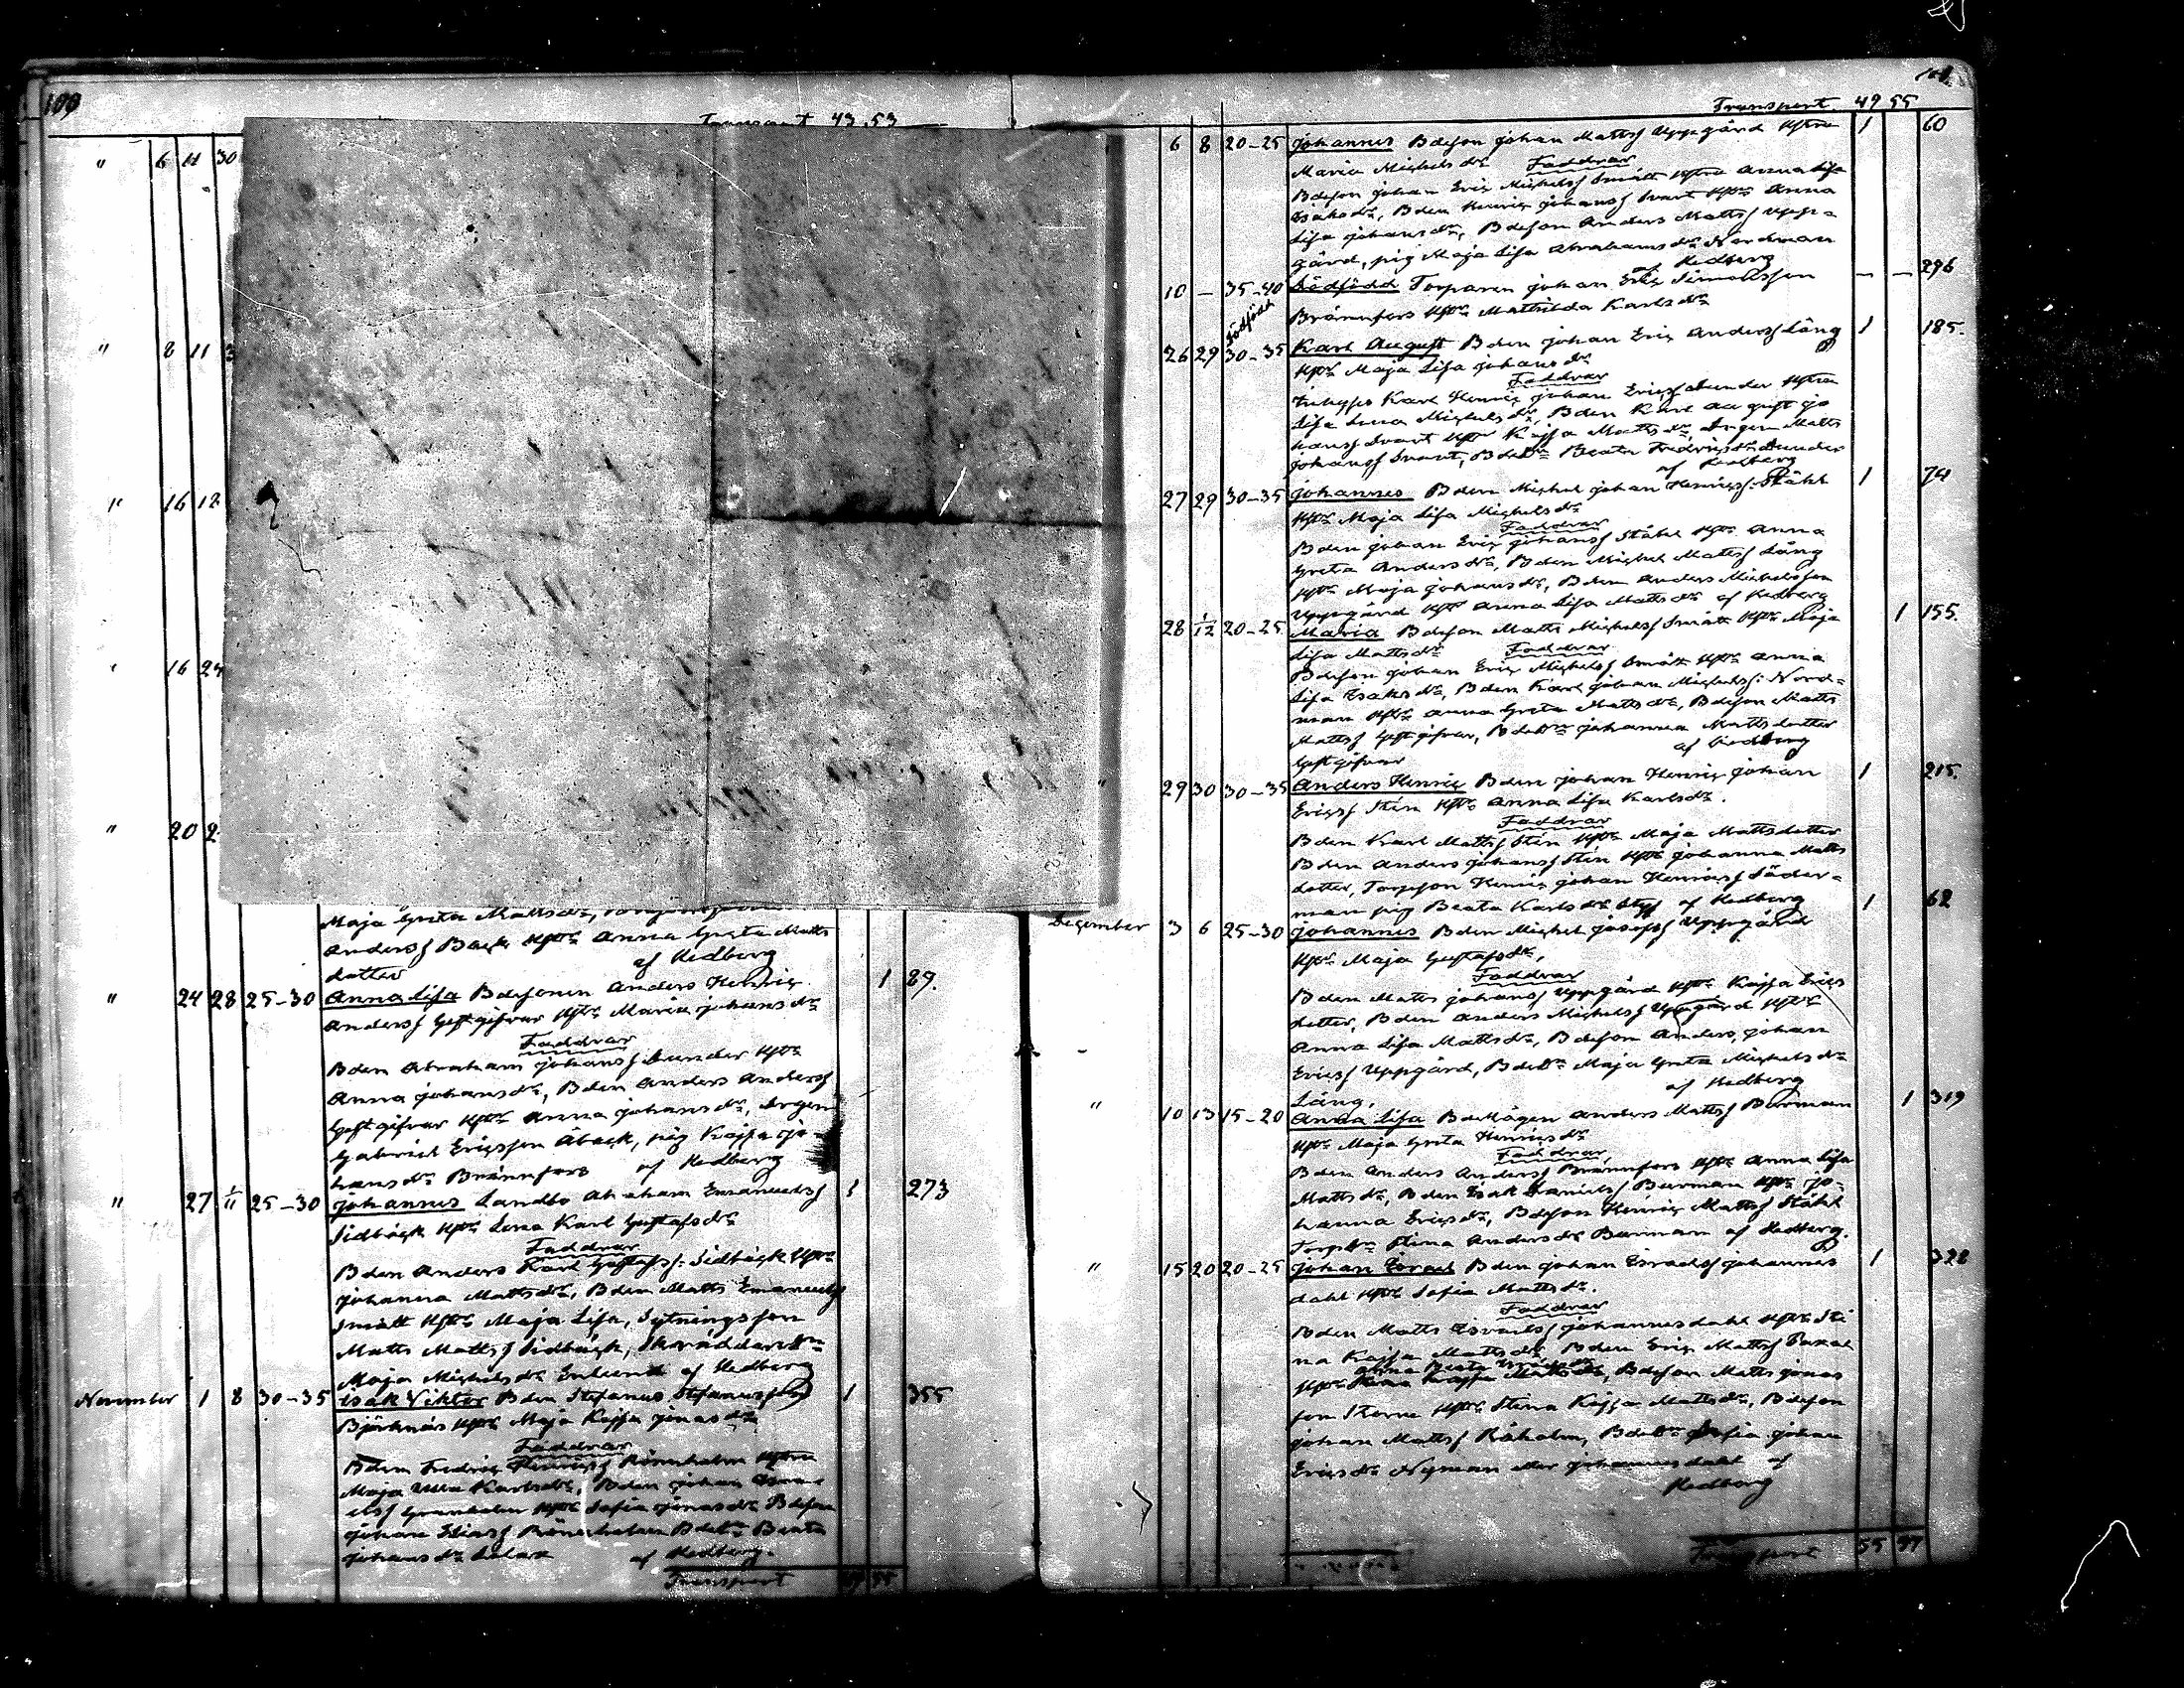 100
Transport 43 53
" 6 11 30
" 8 11 3
" 16 18
" 16 24
" 20 2
Maja Greta Mattsdr,
Anderss Back hstr Anna Greta Matts
dotter af Hedberg
" 24 28 25-30 Anna Lisa Bdesonen Anders Henric 1 89.
Anderss Gestgifvar hstr Maria Johansdr
Faddrar
Bden Abraham Johanss Sunder hstr
Anna Johansdr, Bden Anders Anderss
Gestgifvar hstr Anna Johansdr, Drgen
Gabriel Ericsson Åback, pig Kajsa Jo-
hansdr Brännfors af Hedberg
" 27 1/11 25-30 Johannes Landbo Abraham Emanuelss 1 273
Sidbäck hstr Lena Karl Gustafsdr
Faddrar
Bden Anders Karl Gustafss: Sidbäck hstr
Johanna Mattsdr, Bden Matts Emanuels
Smått hstr Maja Lisa, Sytningsson
Matts Mattss Sidbäck, Skräddaredr
Maja Michelsdr Enlund af Hedberg
November 1 8 30-35 Isak Viktor Bden Stefanus Stefanusson 1 355
Björknäs hstr Maja Kajsa Jonasdr
Faddrar
Bden Fredric Henricss Rönnholm hstru
Maja Ulla Karlsdr, Bden Johan Isra-
elss Granholm hstr Sofia Jonasdr Bdeson
Johan Eliass Rönnholm Bdedr Beata
Johansdr af Hedberg.
Transport 49 55
101
Transport 49 55
6 8 20-25 Johannes Bdeson Johan Mattss Uppgård hstru 1 60
Maria Michelsdr Faddrar
Bdeson Johan Eric Michelss Smått hstru Anna Lisa
Isaksdr, Bden Henric Johanss Svart hstr Anna
Lisa Johansdr, Bdeson Anders Mattss Upp=
gård, pig Maja Lisa Abrahamsdr Nordman
af Hedberg
10 - 35-40 Dödfödd Torparen Johan Eric Simonsson - - 296
dödfödd
Brännfors hstr Mathilda Karlsdr
26 29 30-35 Karl August Bden Johan Eric Anderss Lång 1 185.
hstr Maja Lisa Johansdr
Faddrar
Inhyses Karl Henric Johan Ericss Sunder hstru
Lisa Lena Michelsdr, Bden Karl August Jo
hanss Svart hstr Kajsa Mattsdr, Drgen Matts
Johanss Svart, Bdedr Beata Fredricsdr Sunder
af Hedberg
27 29 30-35 Johannes Bden Michel Johan Henricss: Ståhl 1 74
hstr Maja Lisa Michelsdr
Faddrar
Bden Johan Eric Johanss Ståhl hstr Anna
Greta Andersdr, Bden Michel Mattss Lång
hstr Maja Johansdr, Bden Anders Michelsson
Uppgård hstr Anna Lisa Mattsdr af Hedberg
28 1/12 20-25 Maria Bdeson Matts Michelss Smått hstr Maja 1 155.
Lisa Mattsdr Faddrar
Bdeson Johan Eric Michelss Smått hstr Anna
Lisa Isaksdr, Bden Karl Johan Michelss: Nord=
man hstr Anna Greta Mattsdr, Bdeson Matts
Mattss Gestgifvar, Bdedr Johanna Mattsdotter
Gestgifvar af Hedberg
" 29 30 30-35 Anders Henric Bden Johan Henric Johan 1 215.
Ericss Stén hstr Anna Lisa Karlsdr.
Faddrar
Bden Karl Mattss Stén hstr Maja Mattsdotter
Bden Anders Johanss Stén hstr Johanna Matts
dotter, Torpson Henric Johan Henricss Söder=
man pig Beata Karlsdr af Hedberg
December 3 6 25-30 Johannes Bden Michel Josefss Uppgård 1 62
hstr Maja Gustafsdr,
Faddrar
Bden Matts Johanss Uppgård hstr Kajsa Erics
dotter, Bden Anders Michelss Uppgård hstr
Anna Lisa Mattsdr, Bdeson Anders Johan
Ericss Uppgård, Bdedr Maja Greta Michelsdr
Lång, af Hedberg
" 10 13 15-20 Anna Lisa Bdemågen Anders Mattss Burman 1 319
hstr Maja Greta Henricsdr
Faddrar
Bden Anders Anderss Brännfors hstr Anna Lisa
Mattsdr, Bden Isak Daniels Burman hstr Jo-
hanna Ericsdr, Bdeson Henric Mattss Ståhl
Torpdr Stina Andersdr Burman af Hedberg.
" 15 20 20-25 Johan Israel Bden Johan Israelss Johannes 1 328
dahl hstr Sofia Mattsdr.
Faddrar
Bden Matts Israels Johannesdahl hstr Sti
na Kajsa Mattsdr, Bden Eric Mattss
Anna Beata
hstr Stina Kajsa Mattsdr, Bdeson Matts Jonas
son Storra hstr Stina Kajsa Mattsdr, Bdeson
Johan Mattss Råholm, Bdedr Sofia Johan
Ericsdr Nyman Johannesdahl af
Hedberg
Transport 55 57